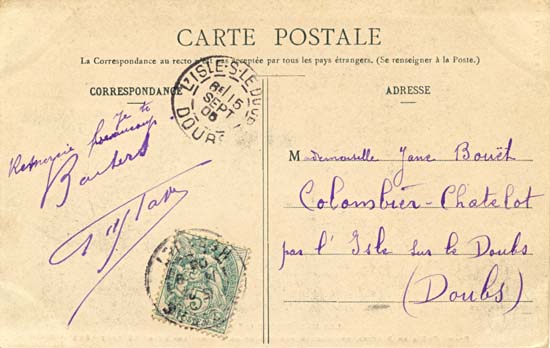 CARTE POSTALE
La Correspondance au recto n'est pas acceptée par tous les pays étrangers. (Se renseigner à la Poste.)
CORRESPONDANCE
L'ISLE-S-LE-DOUBS
8E 15
SEPT
DOUBS
Je te
Remercie beaucoup
Baisers
ADRESSE
Mademoiselle Jane Bouët
Colombier-Chatelot
par l'Isle sur le Doubs
(Doubs)
5